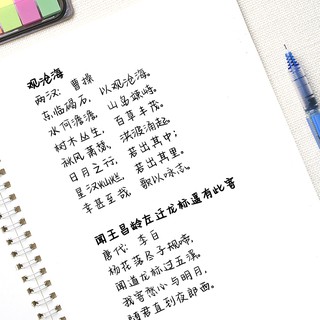 观沧海
两汉：曹操
东临碣石，以观沧海。
水何澹澹，山岛竦峙。
树木丛生，百草丰茂。
秋风萧瑟，洪波涌起。
日月之行，若出其中；
星汉灿烂，若出其里。
幸甚至哉，歌以咏志。
闻王昌龄左迁龙标遥有此寄
唐代：李白
杨花落尽子规啼，
闻道龙标过五溪。
我寄愁心与明月，
随君直到夜郎西。